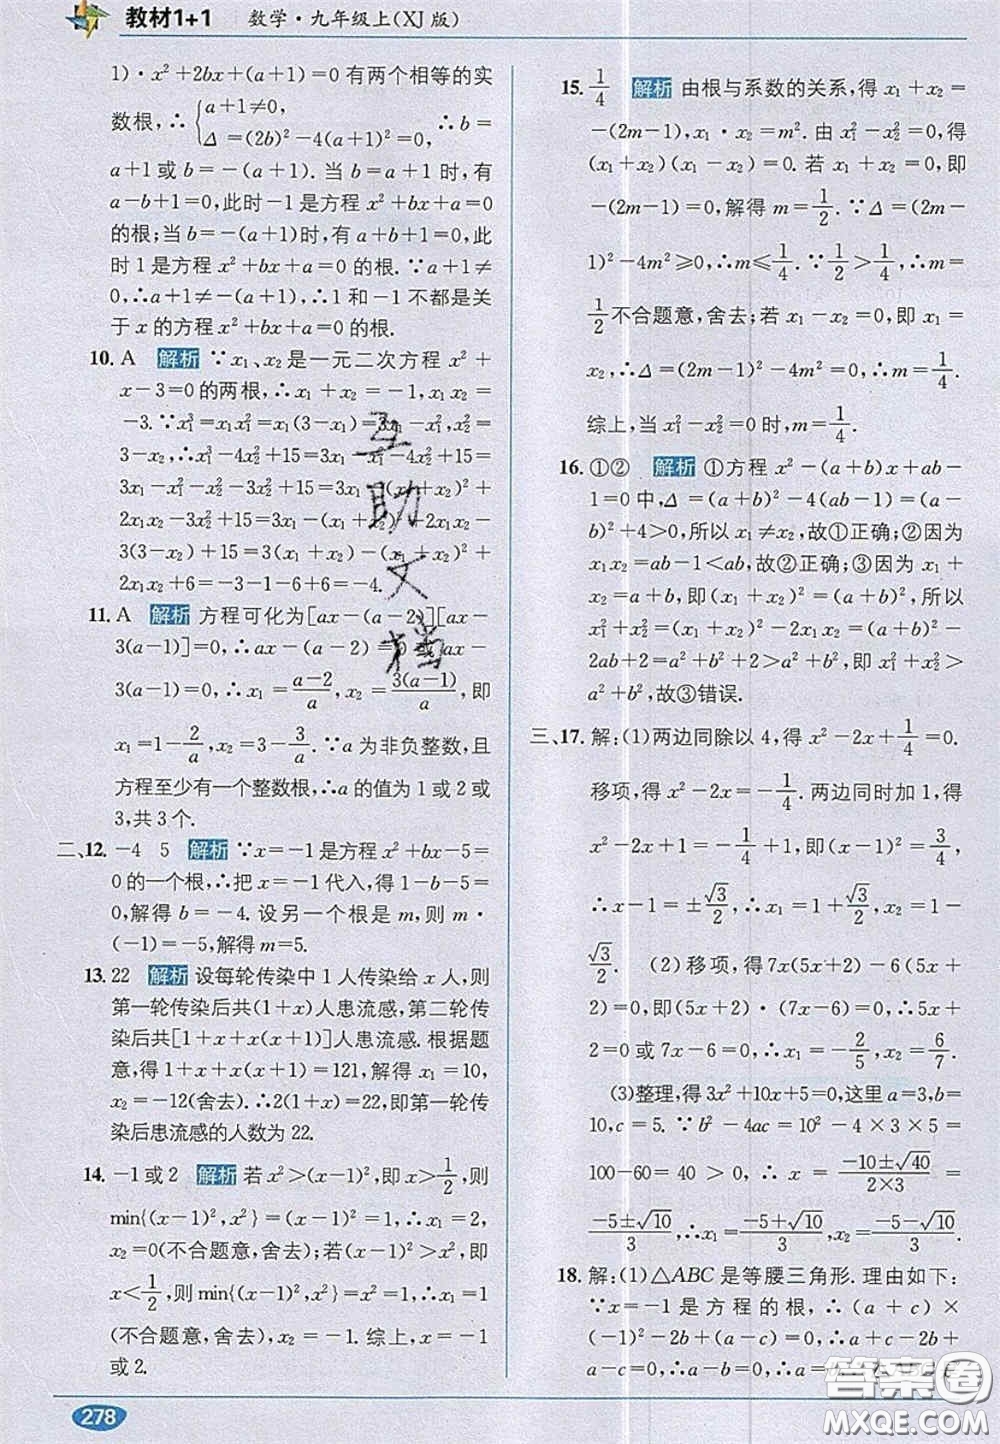 教材1+1 数学·九年级上(XJ版)
1)·x²+2bx+(a+1)=0有两个相等的实
数根,∴{a+1≠0, Δ=(2b)²-4(a+1)²=0. ∴b=
a+1或b=-(a+1). 当b=a+1时,有
a-b+1=0,此时-1是方程x²+bx+a=0
的根;当b=-(a+1)时,有a+b+1=0,此
时1是方程x²+bx+a=0的根.∵a+1≠
0,∴a+1≠-(a+1),∴1和-1不都是关
于x的方程x²+bx+a=0的根.
10. A 解析 ∵x₁、x₂是一元二次方程x²+
x-3=0的两根,∴x₁+x₂=-1,x₁x₂=
-3.∵x₁³=x₁x₁²=x₁(3-x₁)=3x₁-x₁²,x₂²=
3-x₂,∴x₁³-4x₂²+15=3x₁-x₁²-4x₂²+15=
3x₁-x₁²-x₂²-3x₂²+15=3x₁-(x₁²+x₂²)-
3(3-x₂)+15=3(x₁+x₂)-(x₁+x₂)²+
2x₁x₂+6=-3-1-6+6=-4.
11. A 解析 方程可化为[ax-(a-2)][ax-
3(a-1)]=0,∴ax-(a-2)=0或ax-
3(a-1)=0,∴x₁=(a-2)/a,x₂=3(a-1)/a,即
x₁=1-2/a,x₂=3-3/a.∵a为非负整数,且
方程至少有一个整数根,∴a的值为1或2或
3,共3个.
二、12. -4 5 解析 ∵x=-1是方程x²+bx-5=
0的一个根,∴把x=-1代入,得1-b-5=
0,解得b=-4. 设另一个根是m,则m·
(-1)=-5,解得m=5.
13. 22 解析 设每轮传染中1人传染给x人,则
第一轮传染后共(1+x)人患流感,第二轮传
染后共[1+x+x(x+1)]人患流感. 根据题
意,得1+x+x(x+1)=121,解得x₁=10,
x₂=-12(舍去).∴2(1+x)=22,即第一轮传
染后患流感的人数为22.
14. -1或2 解析 若x²>(x-1)²,即x>1/2,则
min{(x-1)²,x²}=(x-1)²=1,∴x₁=2,
x₂=0(不合题意,舍去);若(x-1)²>x²,即
x<1/2,则min{(x-1)²,x²}=x²=1,∴x₁=1
(不合题意,舍去),x₂=-1. 综上,x=-1
或2.
15. 1/4 解析 由根与系数的关系,得x₁+x₂=
-(2m-1),x₁·x₂=m². 由x₁²-x₂²=0,得
(x₁+x₂)(x₁-x₂)=0. 若x₁+x₂=0,即
-(2m-1)=0,解得m=1/2.∵Δ=(2m-
1)²-4m²≥0,∴m≤1/4.∵1/2>1/4,∴m=
1/2不合题意,舍去;若x₁-x₂=0,即x₁=
x₂,∴Δ=(2m-1)²-4m²=0,∴m=1/4.
综上,当x₁²-x₂²=0时,m=1/4.
16. ①② 解析 ①方程x²-(a+b)x+ab-
1=0中,Δ=(a+b)²-4(ab-1)=(a-
b)²+4>0,所以x₁≠x₂,故①正确;②因为
x₁x₂=ab-1<ab,故②正确;③因为
x₁+x₂=a+b,即(x₁+x₂)²=(a+b)²,所以
x₁²+x₂²=(x₁+x₂)²-2x₁x₂=(a+b)²-
2ab+2=a²+b²+2>a²+b²,即x₁²+x₂²>
a²+b²,故③错误.
三、17. 解:(1)两边同除以4,得x²-2x+1/4=0.
移项,得x²-2x=-1/4. 两边同时加1,得
x²-2x+1=-1/4+1,即(x-1)²=3/4,
∴x-1=±√3/2,∴x₁=1+√3/2,x₂=1-
√3/2. (2)移项,得7x(5x+2)-6(5x+
2)=0,即(5x+2)·(7x-6)=0,∴5x+2
=0或7x-6=0,∴x₁=-2/5,x₂=6/7.
(3)整理,得3x²+10x+5=0,这里a=3,b=
10,c=5. ∵b²-4ac=10²-4×3×5=
100-60=40>0,∴x=(-10±√40)/(2×3)=
(-5±√10)/3,∴x₁=(-5+√10)/3,x₂=(-5-√10)/3.
18. 解:(1)△ABC是等腰三角形. 理由如下:
∵x=-1是方程的根,∴(a+c)×
(-1)²-2b+(a-c)=0,∴a+c-2b+
a-c=0,∴a-b=0,∴a=b,
互助文档
278
答案圈
MXQE.COM